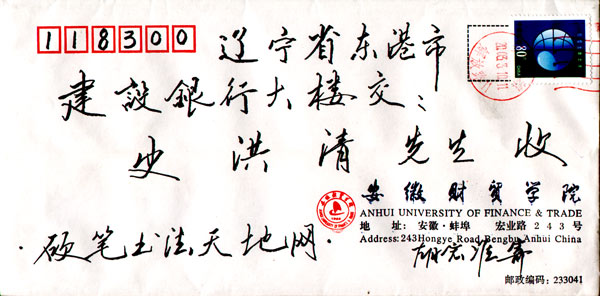 118300
辽宁省东港市
建設銀行大楼交:
史洪清先生收
安徽财贸学院
ANHUI UNIVERSITY OF FINANCE & TRADE
地 址: 安徽·蚌埠 宏业路243号
Address:243Hongye Road,Bengbu Anhui China
·硬笔书法天地网·
邮政编码: 233041
80